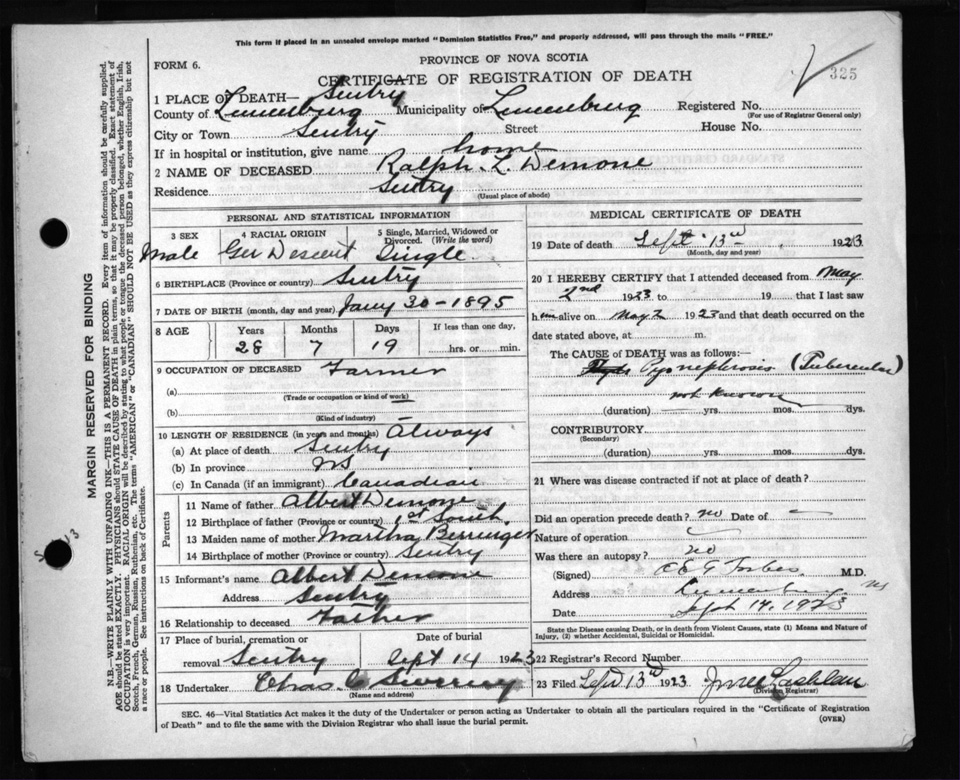 This form if placed in an unsealed envelope marked "Dominion Statistics Free," and properly addressed, will pass through the mails "FREE."
FORM 6.
PROVINCE OF NOVA SCOTIA
325
CERTIFICATE OF REGISTRATION OF DEATH
1 PLACE OF DEATH— Sentry
County of Lunenburg Municipality of Lunenburg Registered No.
(For use of Registrar General only)
City or Town Sentry Street House No.
If in hospital or institution, give name home
2 NAME OF DECEASED Ralph L. Demone
Residence Sentry
(Usual place of abode)
PERSONAL AND STATISTICAL INFORMATION
3 SEX 4 RACIAL ORIGIN 5 Single, Married, Widowed or Divorced. (Write the word)
Male Ger Descent Single
6 BIRTHPLACE (Province or country) Sentry
7 DATE OF BIRTH (month, day and year) Jany 30 - 1895
8 AGE Years Months Days If less than one day,
28 7 19 hrs. or min.
9 OCCUPATION OF DECEASED Farmer
(a)
(Trade or occupation or kind of work)
(b)
(Kind of industry)
10 LENGTH OF RESIDENCE (in years and months) Always
(a) At place of death Sentry
(b) In province NS
(c) In Canada (if an immigrant) Canadian
Parents
11 Name of father Albert Demone
12 Birthplace of father (Province or country) 1st South
13 Maiden name of mother Martha Berringer
14 Birthplace of mother (Province or country) Sentry
15 Informant's name Albert Demone
Address Sentry
16 Relationship to deceased Father
17 Place of burial, cremation or Date of burial
removal Sentry Sept 14 1923
18 Undertaker Chas. C
(Name and address)
MEDICAL CERTIFICATE OF DEATH
19 Date of death Sept 13th, 1923
(Month, day and year)
20 I HEREBY CERTIFY that I attended deceased from May
2nd 1923 to 19 that I last saw
him alive on May 2 1923 and that death occurred on the
date stated above, at m.
The CAUSE of DEATH was as follows:—
Pyonephrosis (Tubercular)
not known
(duration) yrs. mos. dys.
CONTRIBUTORY
(Secondary)
(duration) yrs. mos. dys.
21 Where was disease contracted if not at place of death?
Did an operation precede death? no Date of —
Nature of operation
Was there an autopsy? no
(Signed) Forbes M.D.
Address Lunenburg NS
Date Sept 14, 1923
State the Disease causing Death, or in death from Violent Causes, state (1) Means and Nature of Injury, (2) whether Accidental, Suicidal or Homicidal.
22 Registrar's Record Number
23 Filed Sept 13th 1923
(Division Registrar)
SEC. 46—Vital Statistics Act makes it the duty of the Undertaker or person acting as Undertaker to obtain all the particulars required in the "Certificate of Registration
of Death" and to file the same with the Division Registrar who shall issue the burial permit.
(OVER)
MARGIN RESERVED FOR BINDING
N.B.—WRITE PLAINLY WITH UNFADING INK—THIS IS A PERMANENT RECORD. Every item of information should be carefully supplied.
AGE should be stated EXACTLY. PHYSICIANS should STATE CAUSE OF DEATH in plain terms, so that it may be properly classified. Exact statement of
OCCUPATION is very important. RACIAL ORIGIN will be described by stating to what people or tongue the deceased person belonged, whether English, Irish,
Scotch, French, German, Russian, Ruthenian, etc. The terms "AMERICAN" or "CANADIAN" SHOULD NOT BE USED as they express citizenship but not
a race or people. See instructions on back of Certificate.